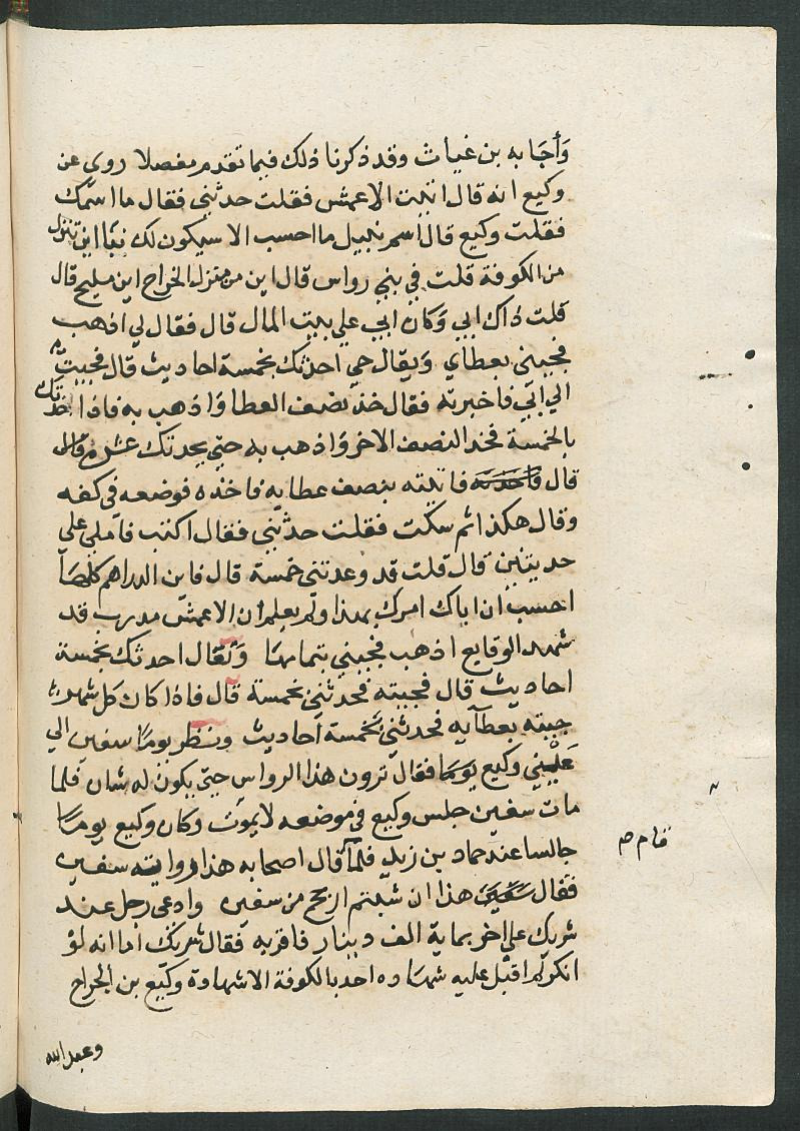 وأجابه بن غياث وقد ذكرنا ذلك فيما تقدم مفصلا روى عن
وكيع انه قال اتيت الاعمش فقلت حدثني فقال ما اسمك
فقلت وكيع قال اسم نبيل ما احسب الا سيكون لك نبا اين تنزل
من الكوفة قلت في بني رواس قال اين من منزل الجراح ابن مليح قال
قلت ذاك ابي وكان ابي علي بيت المال قال فقال لي اذهب
فجيني بعطاي وتعال حتي احدثك بخمسة احاديث قال فجيت
الي ابي فاخبرته فقال خذ نصف العطا واذهب به فاذا حدثك
بالخمسة فخذ النصف الاخر واذهب به حتي يحدثك عشرة
قال فاتيته بنصف عطايه فاخذه فوضعه في كفه
وقال هكذا ثم سكت فقلت حدثني فقال اكتب فاملي علي
حديثين قال قلت قد وعدتني خمسة قال فاين الدراهم كلها
احسب ان اباك امرك بهذا ولم يعلم ان الاعمش مدرب قد
شهد الوقايع اذهب فجيني بتمامها وتعال احدثك بخمسة
احاديث قال فجيته فحدثني بخمسة قال فاذا كان كل شهر
جيته بعطايه فحدثني بخمسة احاديث ونظر يوما سفين الي
عيني وكيع يوما فقال ترون هذا الرواسي حتي يكون له شان فلما
مات سفين جلس وكيع في موضعه لا يموت وكان وكيع يوما
جالسا عند حماد بن زيد فلما قال اصحابه هذا راوية سفين
فقال هذا ان شيتم ارجح من سفين وادعى رجل عند
شريك علي اخر بماية الف دينار فاقر به فقال شريك اما انه لو
انكر لم اقبل عليه شهادة احد بالكوفة الا شهادة وكيع بن الجراح
وعبد الله